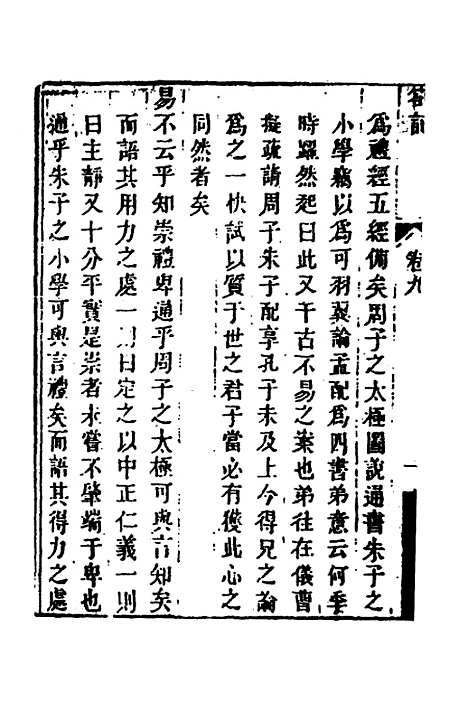 卷九
為禮經五經備矣周子之太極圖說通書朱子之
小學竊以為可羽翼論孟配為四書弟意云何季
時躍然起曰此又千古不易之案也弟往在儀曹
擬疏請周子朱子配享孔子未及上今得兄之論
為之一快試以質于世之君子當必有獲此心之
同然者矣
易不云乎知崇禮卑通乎周子之太極可與言知矣
而語其用力之處一則曰定之以中正仁義一則
曰主靜又十分平實是崇者未嘗不肇端于卑也
通乎朱子之小學可與言禮矣而語其得力之處